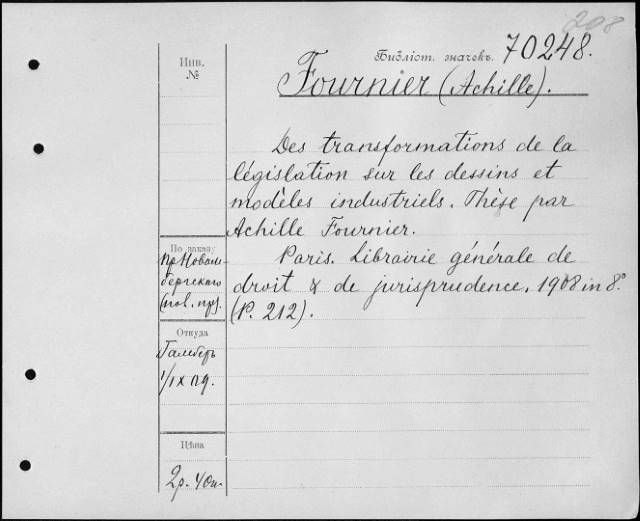 208
Библіот. значекъ. 70248.
Инв.
№
Fournier (Achille).
Des transformations de la
législation sur les dessins et
modèles industriels. Thèse par
Achille Fournier.
Paris. Librairie générale de
droit & de jurisprudence, 1908 in 8º
(P. 212).
По заказу
Пр. Новом-
бергского
Откуда
Гамберъ
Цѣна
2р. 40к.